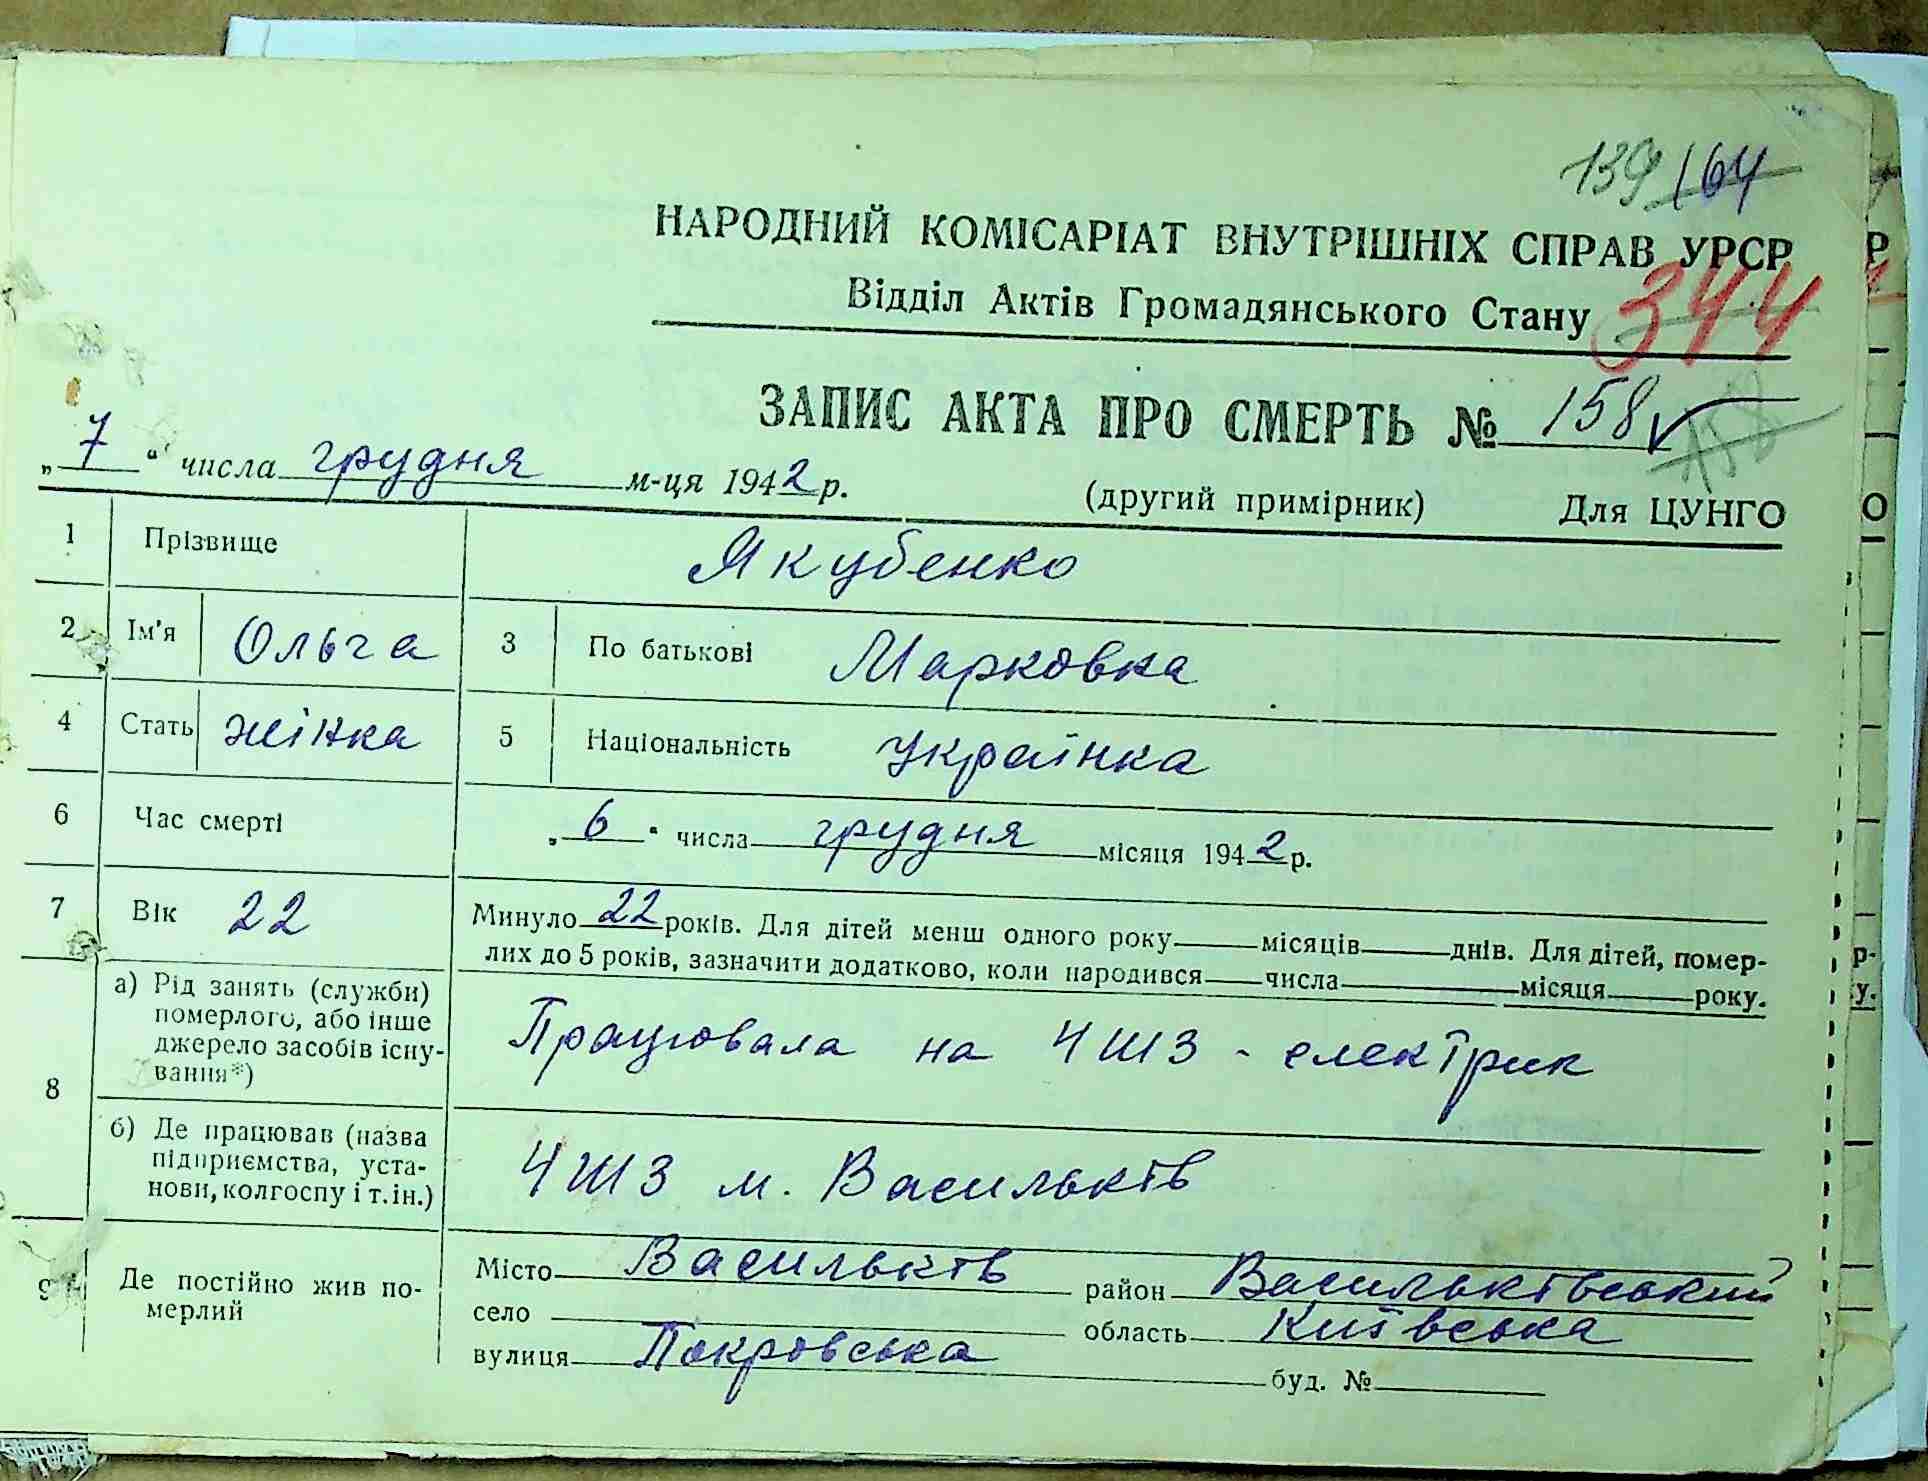 139 164
НАРОДНИЙ КОМІСАРІАТ ВНУТРІШНІХ СПРАВ УРСР
Відділ Актів Громадянського Стану
344
ЗАПИС АКТА ПРО СМЕРТЬ № 158
158
„7“ числа грудня м-ця 1942 р.
(другий примірник) Для ЦУНГО
1 Прізвище Якубенко
2 Ім'я Ольга 3 По батькові Марковка
4 Стать жінка 5 Національність українка
6 Час смерті „6“ числа грудня місяця 1942 р.
7 Вік 22 Минуло 22 років. Для дітей менш одного року місяців днів. Для дітей, помер-
лих до 5 років, зазначити додатково, коли народився числа місяця року.
8 а) Рід занять (служби)
померлого, або інше
джерело засобів існу-
вання*)
Працювала на ЧШЗ - електрик
б) Де працював (назва
підприємства, уста-
нови, колгоспу і т. ін.)
ЧШЗ м. Васильків
9 Де постійно жив по-
мерлий
Місто Васильків район Васильківський
село область Київська
вулиця Покровська буд. №